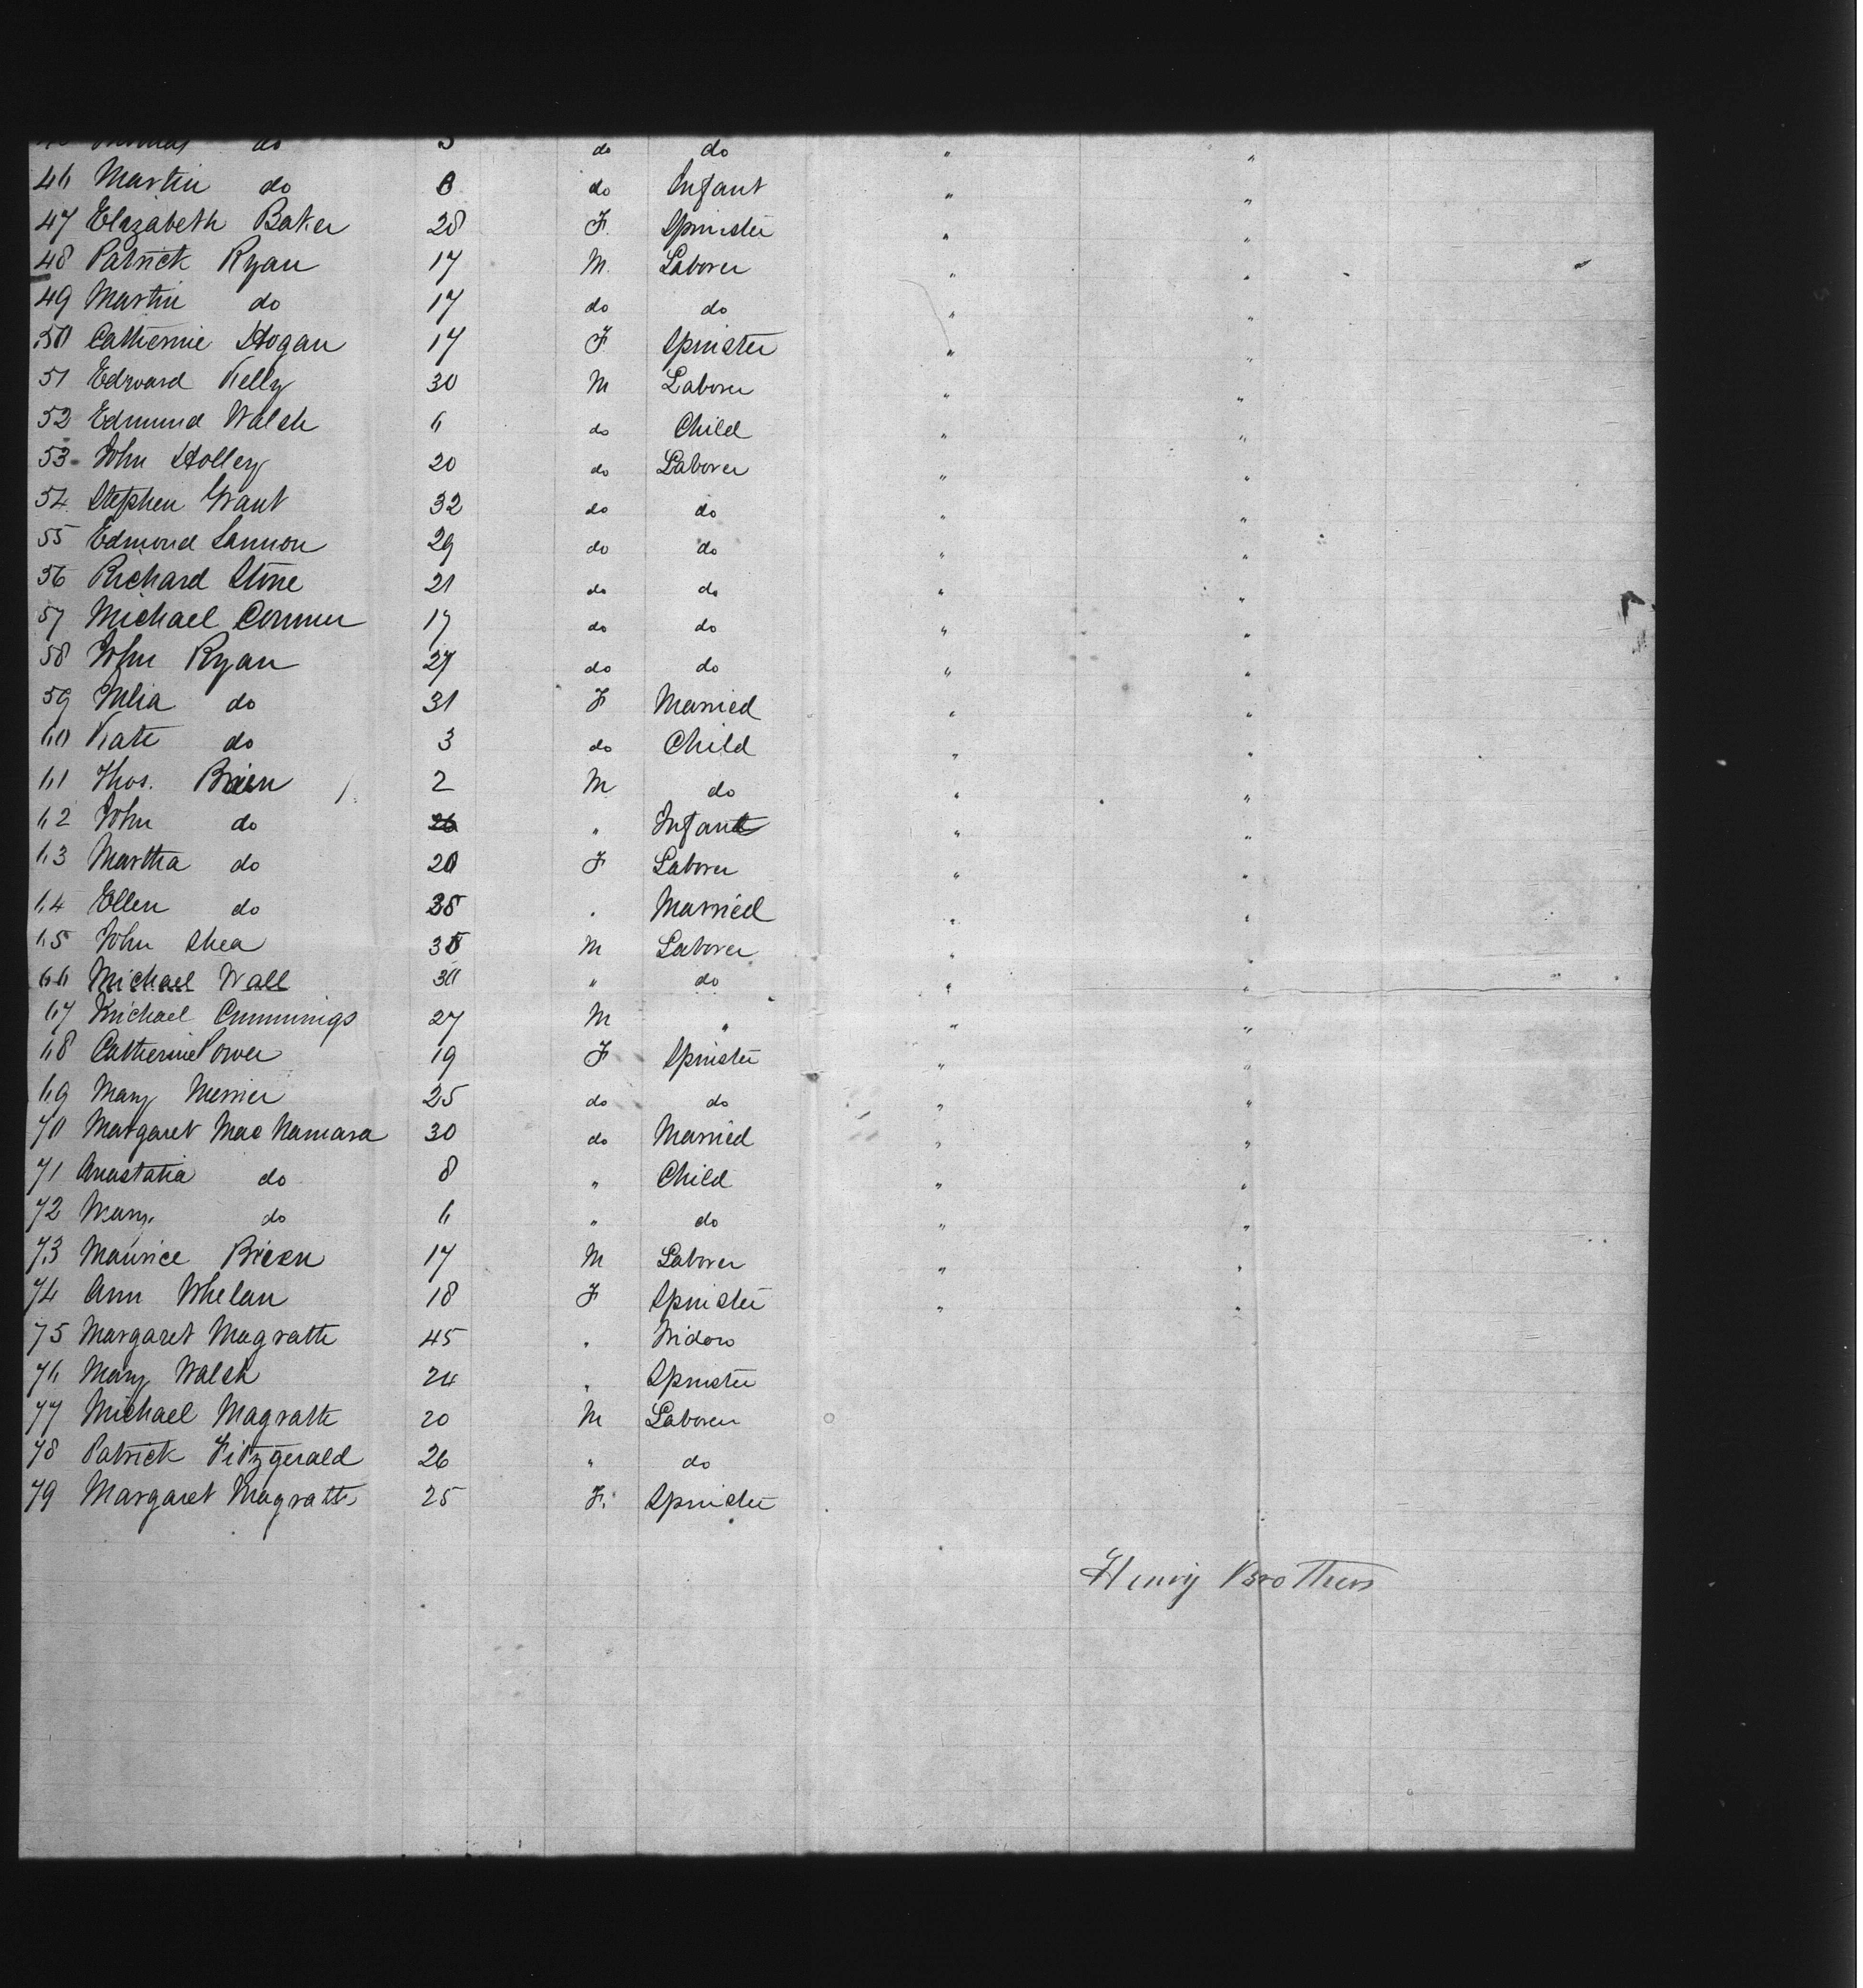 Thomas do 3 do do " "
46 Martin do 0 do Infant " "
47 Elizabeth Baker 28 F. Spinster " "
48 Patrick Ryan 17 M. Laborer " "
49 Martin do 17 do do " "
50 Catherine Hogan 17 F. Spinster " "
51 Edward Kelly 30 M Laborer " "
52 Edmund Walsh 6 do Child " "
53 John Holley 20 do Laborer " "
54 Stephen Want 32 do do " "
55 Edmond Lannon 29 do do " "
56 Richard Stone 21 do do " "
57 Michael Connor 17 do do " "
58 John Ryan 27 do do " "
59 Julia do 31 F Married " "
60 Kate do 3 do Child " "
61 Thos. Brien 2 M do " "
62 John do " Infant " "
63 Martha do 20 F Laborer " "
64 Ellen do 35 " Married " "
65 John Shea 35 M Laborer " "
66 Michael Wall 30 " do " "
67 Michael Cummings 27 M " " "
68 Catherine Power 19 F Spinster " "
69 Mary Merrier 25 do do " "
70 Margaret Mac Namara 30 do Married " "
71 Anastatia do 8 " Child " "
72 Mary do 6 " do " "
73 Maurice Brien 17 M Laborer " "
74 Ann Whelan 18 F Spinster " "
75 Margaret Magrath 45 " Widow
76 Mary Walsh 24 " Spinster
77 Michael Magrath 20 M Laborer
78 Patrick Fitzgerald 26 " do
79 Margaret Magrath 25 F. Spinster
Henry Brothers